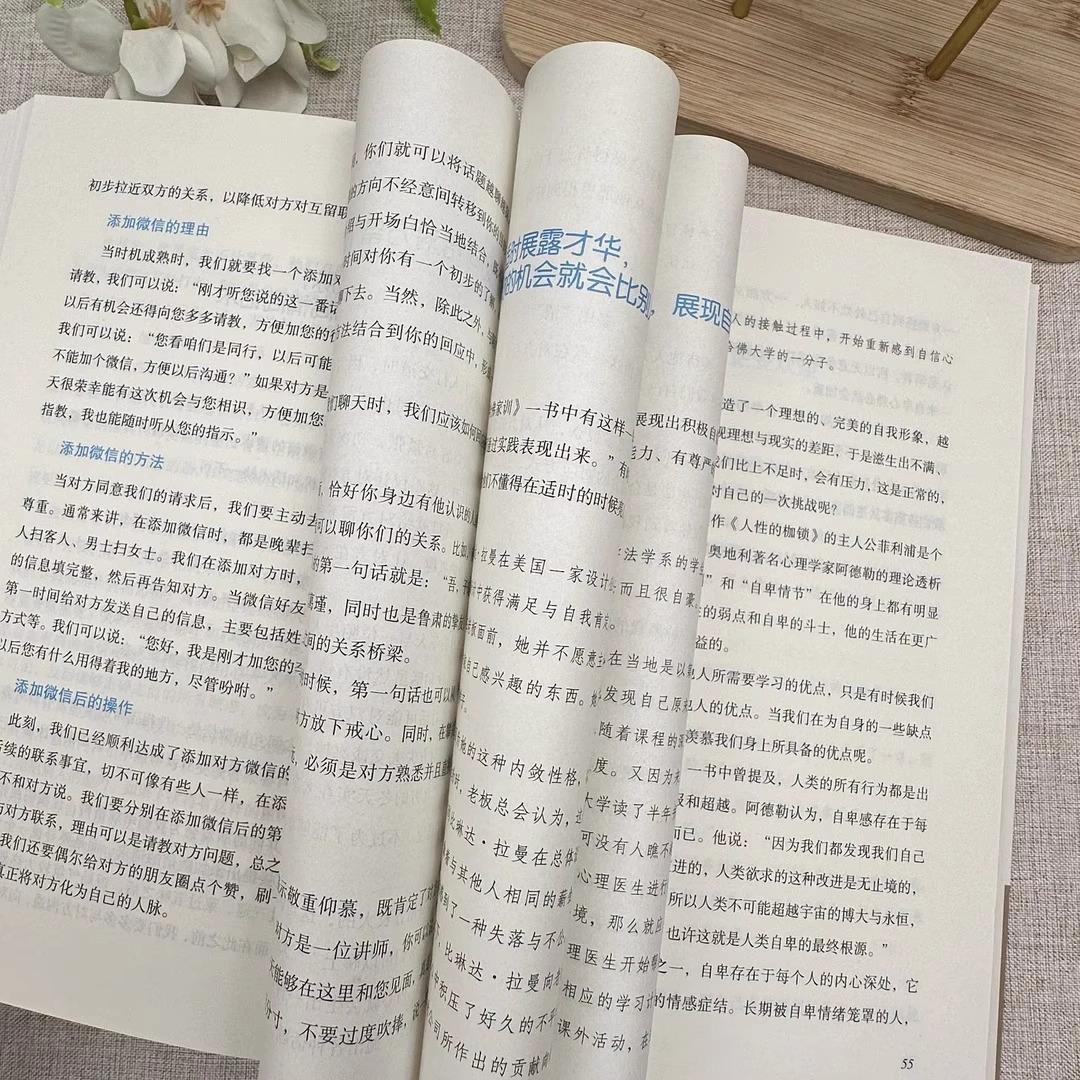 初步拉近双方的关系，以降低对方对互留联
添加微信的理由
当时机成熟时，我们就要找一个添加对
请教，我们可以说：“刚才听您说的这一番话
以后有机会还得向您多多请教，方便加您的
我们可以说：“您看咱们是同行，以后可能
不能加个微信，方便以后沟通？”如果对方是
天很荣幸能有这次机会与您相识，方便加您
指教，我也能随时听从您的指示。”
添加微信的方法
当对方同意我们的请求后，我们要主动去
尊重。通常来讲，在添加微信时，都是晚辈扫
人扫客人、男士扫女士。我们在添加对方时，
的信息填完整，然后再告知对方。当微信好友
第一时间给对方发送自己的信息，主要包括姓
方式等。我们可以说：“您好，我是刚才加您的
以后您有什么用得着我的地方，尽管吩咐。”
添加微信后的操作
此刻，我们已经顺利达成了添加对方微信的
续的联系事宜，切不可像有些人一样，在添
不和对方说。我们要分别在添加微信后的第
对方联系，理由可以是请教对方问题，总之
我们还要偶尔给对方的朋友圈点个赞，刷
真正将对方化为自己的人脉。
，你们就可以将话题越聊
的方向不经意间转移到你的
与开场白恰当地结合，
时间对你有一个初步的了解，
下去。当然，除此之外，与
法结合到你的回应中，形
们聊天时，我们应该如何
，恰好你身边有他认识的人
可以聊你们的关系。比如，
的第一句话就是：“吾，子
瑾，同时也是鲁肃的挚
间的关系桥梁。
时候，第一句话也可以
方放下戒心。同时，在
，必须是对方熟悉并且
示敬重仰慕，既肯定了对
对方是一位讲师，你可以
能够在这里和您见面，
分寸，不要过度吹捧，说
时展露才华，
的机会就会比别
家训》一书中有这样一
通过实践表现出来。”有
们不懂得在适时的时候
·拉曼在美国一家设计
中获得满足与自我肯
面前，她并不愿意
自己感兴趣的东西。
她的这种内敛性格，
时，老板总会认为，这
比琳达·拉曼在总体
着与其他人相同的薪
到了一种失落与不公
，比琳达·拉曼向老
中积压了好久的不
公司所作出的贡献
，展现自
展现出积极自
能力、有尊严
法学系的学
而且很自豪。
在当地是以
发现自己原
随着课程的深
度。又因为
大学读了半年
可没有人瞧不
心理医生进行
境，那么就应
理医生开始
相应的学习计
课外活动，在
人的接触过程中，开始重新感到自信心
哈佛大学的一分子。
造了一个理想的、完美的自我形象，越
现理想与现实的差距，于是滋生出不满、
我们比上不足时，会有压力，这是正常的，
对自己的一次挑战呢？
作《人性的枷锁》的主人公菲利浦是个
奥地利著名心理学家阿德勒的理论透析
”和“自卑情节”在他的身上都有明显
的弱点和自卑的斗士，他的生活在更广
益的。
人所需要学习的优点，只是有时候我们
人的优点。当我们在为自身的一些缺点
羡慕我们身上所具备的优点呢。
一书中曾提及，人类的所有行为都是出
和超越。阿德勒认为，自卑感存在于每
而已。他说：“因为我们都发现我们自己
进的，人类欲求的这种改进是无止境的，
所以人类不可能超越宇宙的博大与永恒，
也许这就是人类自卑的最终根源。”
之一，自卑存在于每个人的内心深处，它
的情感症结。长期被自卑情绪笼罩的人，
55